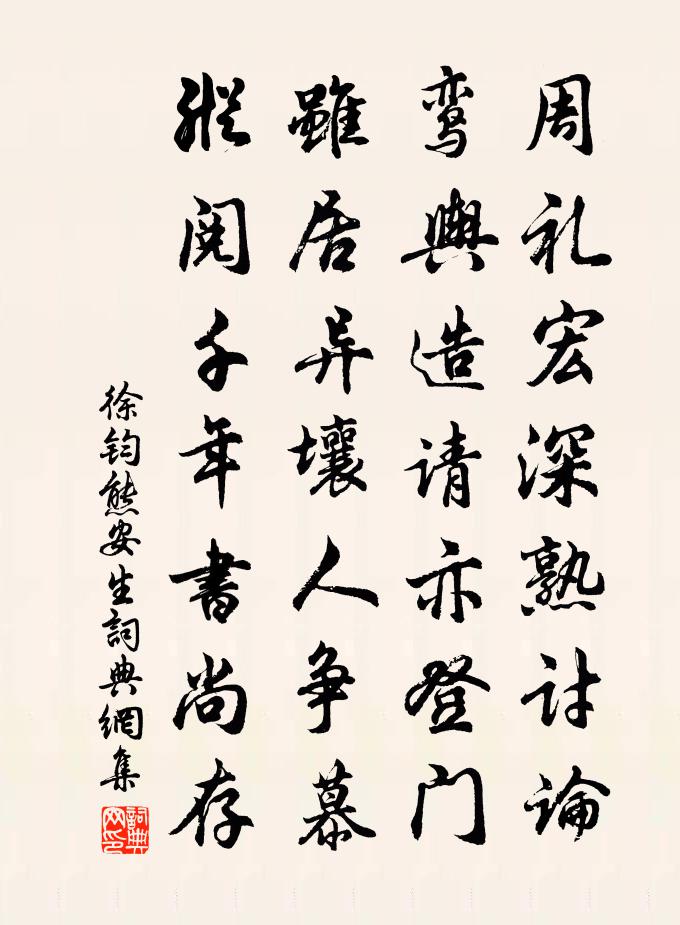 周礼宏深熟讨論
鸾輿造请亦登门
雖居异壤人争慕
縱阅千年書尚存
徐钧熊安生詞典網集
詞典网印